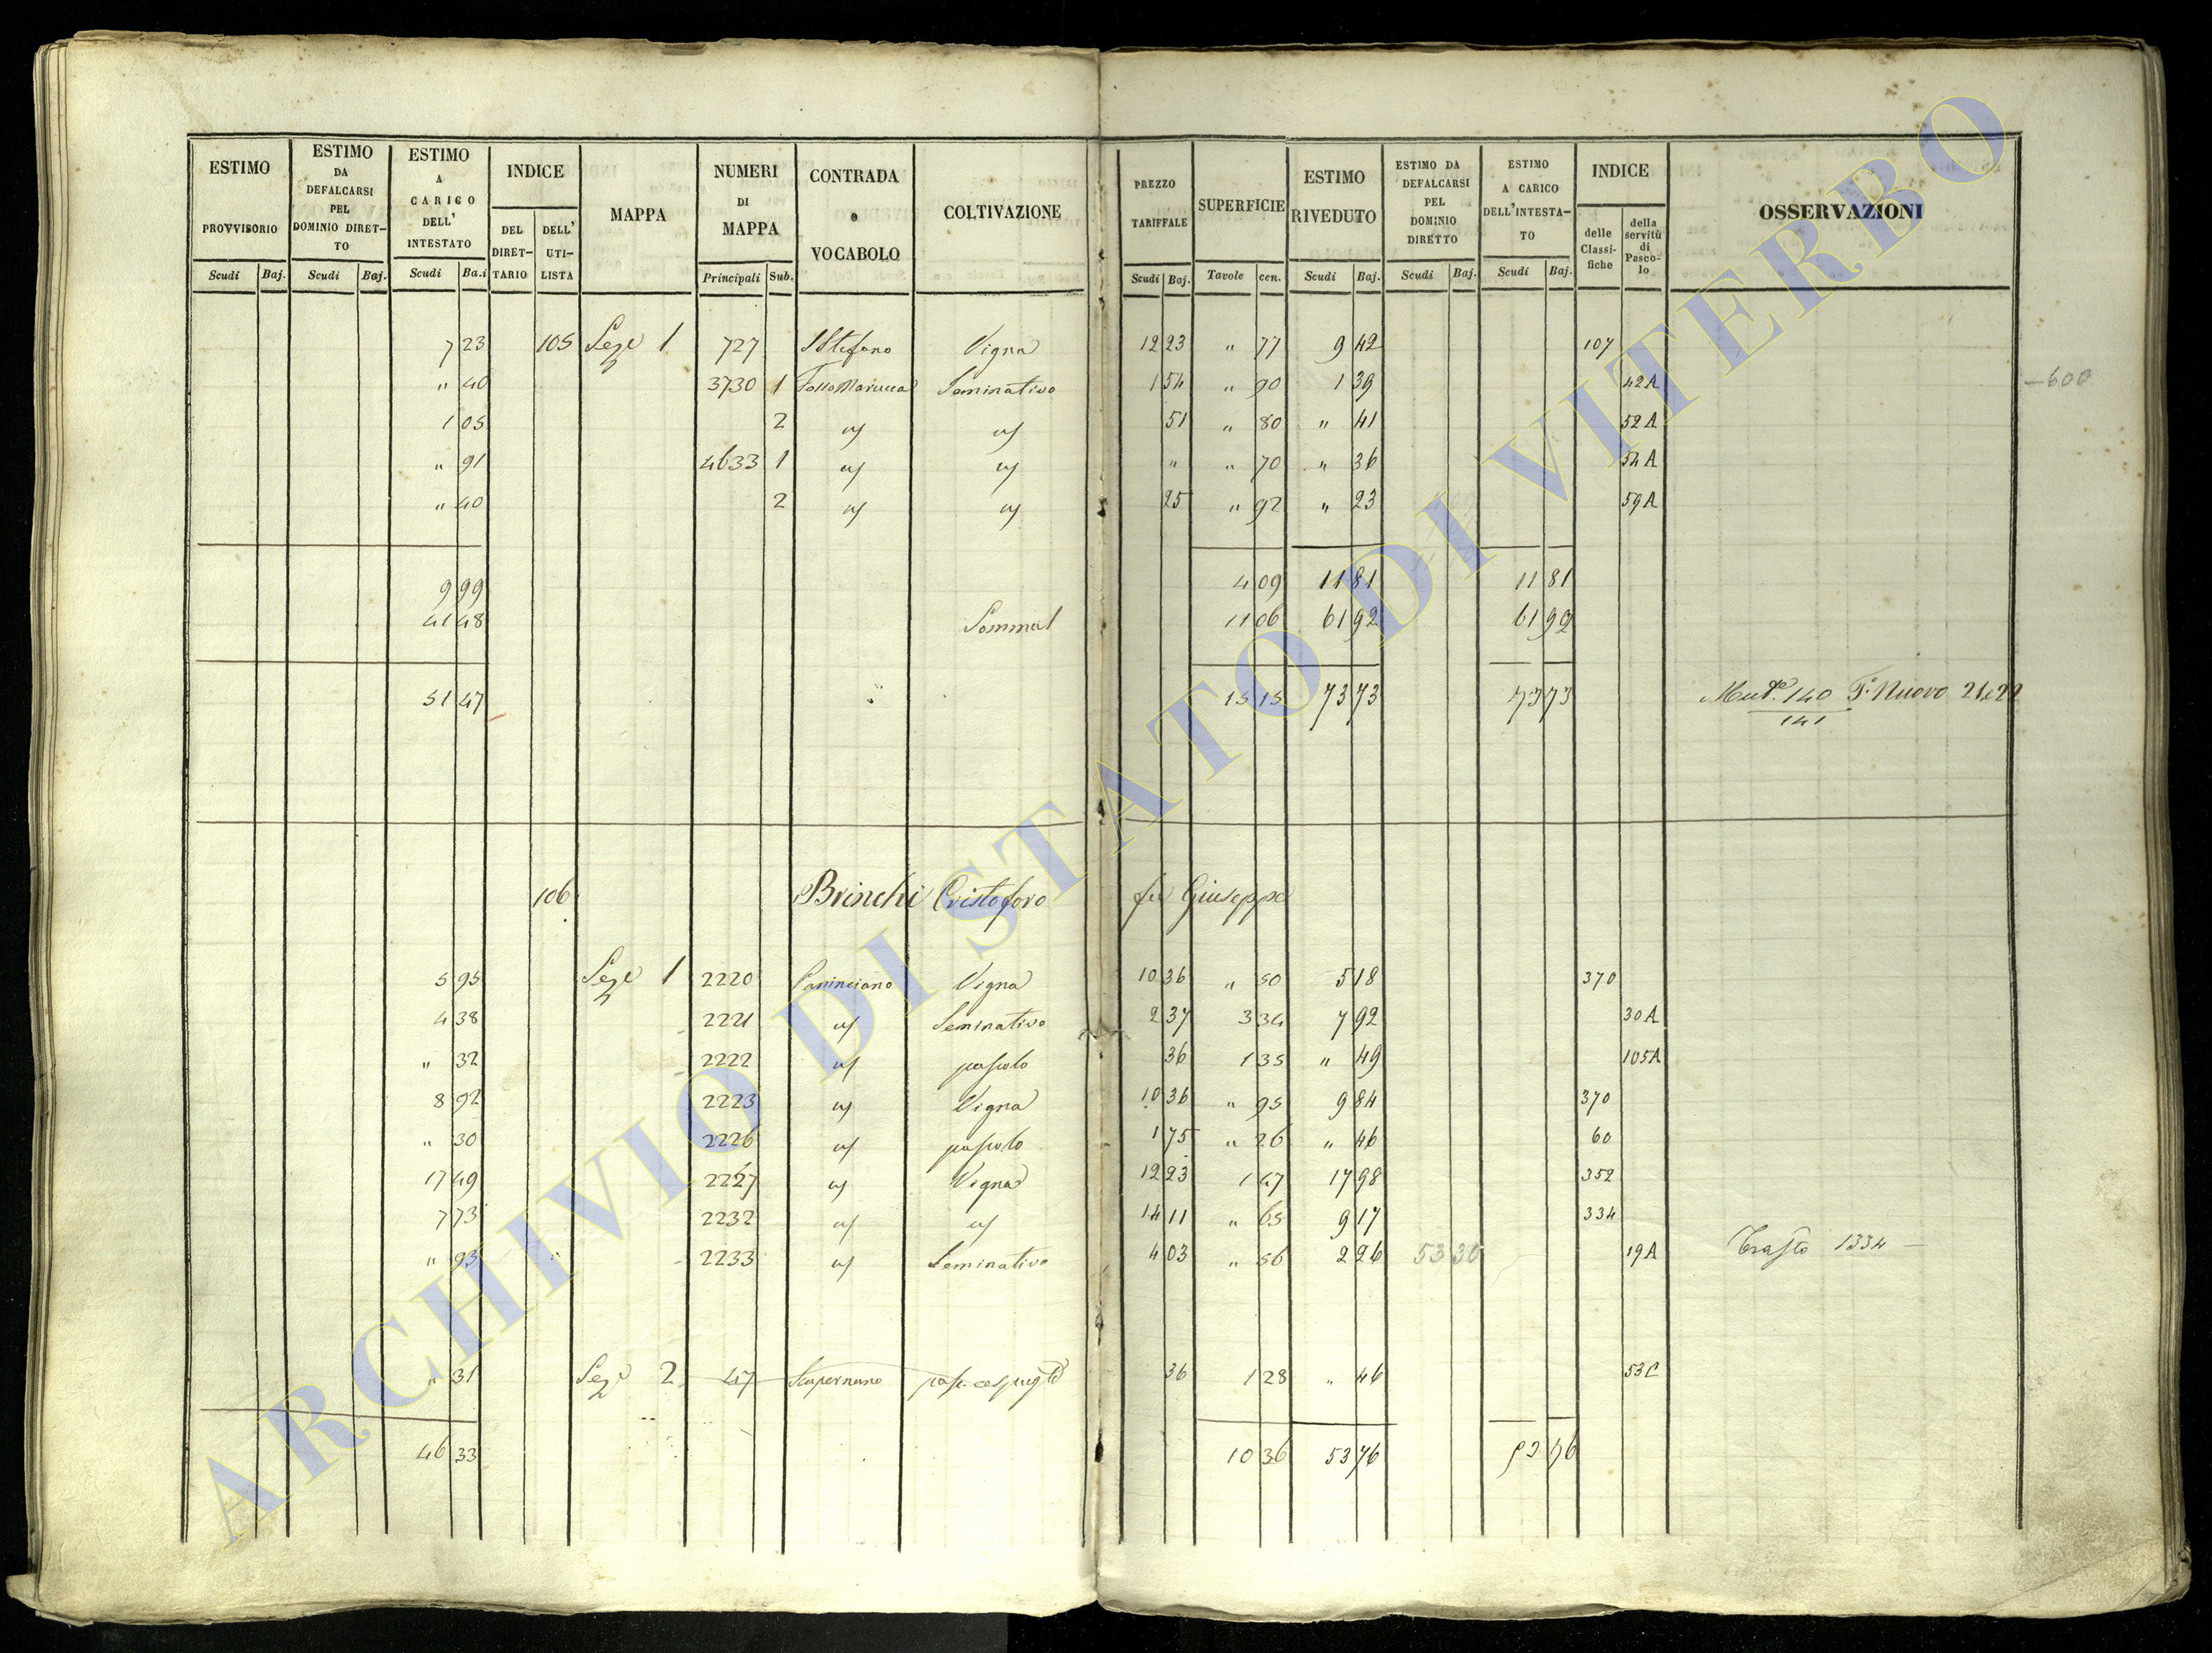 ESTIMO PROVVISORIO Scudi Baj.
ESTIMO DA DEFALCARSI PEL DOMINIO DIRET-TO Scudi Baj.
ESTIMO A CARICO DELL' INTESTATO Scudi Ba.i
INDICE DEL DIRET-TARIO DELL' UTI-LISTA
MAPPA
NUMERI DI MAPPA Principali Sub.
CONTRADA o VOCABOLO
COLTIVAZIONE
PREZZO TARIFFALE Scudi Baj.
SUPERFICIE Tavole cen.
ESTIMO RIVEDUTO Scudi Baj.
ESTIMO DA DEFALCARSI PEL DOMINIO DIRETTO Scudi Baj.
ESTIMO A CARICO DELL'INTESTA-TO Scudi Baj.
INDICE delle Classi-fiche della servitù di Pasco-lo
OSSERVAZIONI
7 23 105 Seze 1 727 S Stefano Vigna 12 23 " 77 9 42 107
" 40 3730 1 Fosso Marucca Seminativo 1 54 " 90 1 39 42A -600
1 05 2 " 51 " 80 " 41 52A
" 91 4633 1 " " 70 " 36 54A
" 40 2 25 " 92 " 23 59A
9 99 4 09 11 81 11 81
41 48 Somma 11 06 61 92 61 92
51 47 15 15 73 73 73 73 140 F. Nuovo 21 e 22
141
106 Brinchi Cristoforo fu Giuseppe
5 95 Seze 1 2220 Vigna 10 36 " 50 5 18 370
4 38 2221 Seminativo 2 37 3 34 7 92 30A
" 32 2222 pascolo 36 1 35 " 49 105A
8 92 2223 Vigna 10 36 " 95 9 84 370
" 30 2226 pascolo 1 75 " 26 " 46 60
17 49 2227 Vigna 12 23 1 47 17 98 352
7 73 2232 14 11 " 65 9 17 334
" 93 2233 Seminativo 4 03 " 56 2 26 53 30 19A Trasto 1334 -
" 31 Seze 2 47 36 1 28 " 46 53C
46 33 10 36 53 76 53 76
ARCHIVIO DI STATO DI VITERBO